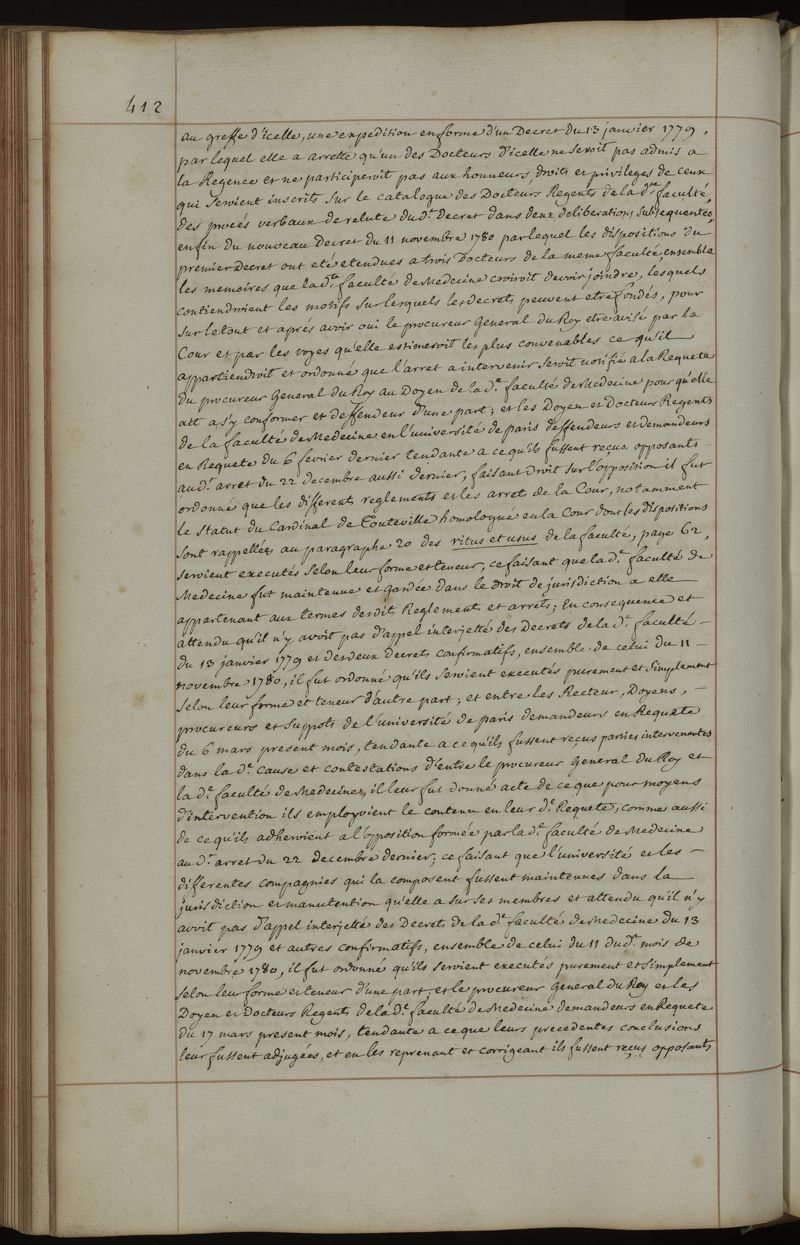 412
au greffe d'icelle, une expedition en forme d'un Decret du 13 janvier 1779,
par lequel elle a arretté qu'un des Docteurs d'icelle ne seroit pas admis a
la Regence et ne participeroit pas aux honneurs, droits et privileges de ceux
qui seroient inscrits sur le catalogue des Docteurs Regents de la d.te faculté,
des procés verbaux de relute du d.t Decret dans deux deliberations subsequentes,
enfin du nouveau Decret du 11 novembre 1780 par lequel les dispositions du
premier Decret ont eté etendues a trois Docteurs de la meme faculté, ensemble
les memoires que la d.te faculté de Medecine croiroit devoir joindre, lesquels
contiendroient les motifs sur lesquels les decrets peuvent etre fondés, pour
sur le tout et aprés avoir oui le procureur General du Roy etre avisé par la
Cour et par les voyes qu'elle estimeroit les plus convenables ce qu'il
appartiendroit et ordonné que l'arret a intervenir seroit notifié a la Requete
du procureur General du Roy au Doyen de la d.e faculté de Medecine pour qu'elle
att a s'y conformer et deffendeur d'une part; et les Doyen et Docteurs Regents
de la faculté de Medecine en l'université de paris deffendeurs et demandeurs
en Requete du 6 fevrier dernier tendante a ce qu'ils fussent reçus opposants
au d.t arret du 22 decembre aussi dernier, faisant droit sur l'opposition il fut
ordonné que les differents reglements et les arrets de la Cour, notamment
le statut du Cardinal de Touteville homologué en la Cour dont les dispositions
sont rappellées au paragraphe 20 des ritus et usus de la faculté, page 62,
seroient executés selon leur forme et teneur; ce faisant que la d.e faculté de
Medecine fut maintenue et gardée dans le droit de jurisdiction a elle
appartenant aux termes desdits Reglements et arrets; En consequence et
attendu qu'il n'y avoit pas d'appel interjetté des Decrets de la d.e faculté
du 13 janvier 1779 et des deux Decrets confirmatifs, ensemble de celui du 11
novembre 1780, il fut ordonné qu'ils seroient executés purement et simplement
selon leur forme et teneur d'autre part; et entre les Recteur, Doyens,
procureurs et Suppots de l'université de paris demandeurs en Requete
du 6 mars present mois, tendante a ce qu'ils fussent reçus parties intervenantes
dans la d.e cause et contestations d'entre le procureur General du Roy et
la d.e faculté de Medecine, il leur fut donné acte de ce que pour moyens
d'intervention ils employoient le contenu en leur d.e Requete, comme aussi
de ce qu'ils adheroient a l'opposition formée par la d.e faculté de Medecine
au d.t arret du 22 decembre dernier; ce faisant que l'université et les
differentes compagnies qui la composent fussent maintenues dans la
jurisdiction et manutention qu'elle a sur ses membres et attendu qu'il n'y
avoit pas d'appel interjetté des Decrets de la d.e faculté de Medecine du 13
janvier 1779 et autres confirmatifs, ensemble de celui du 11 du d.t mois de
novembre 1780, il fut ordonné qu'ils seroient executés purement et simplement
selon leur forme et teneur d'une part, et le procureur General du Roy et les
Doyen et Docteurs Regents de la d.e faculté de Medecine demandeurs en Requete
du 17 mars present mois, tendante a ce que leurs precedentes conclusions
leur fussent adjugées, et en les reprenant et corrigeant ils fussent reçus opposants